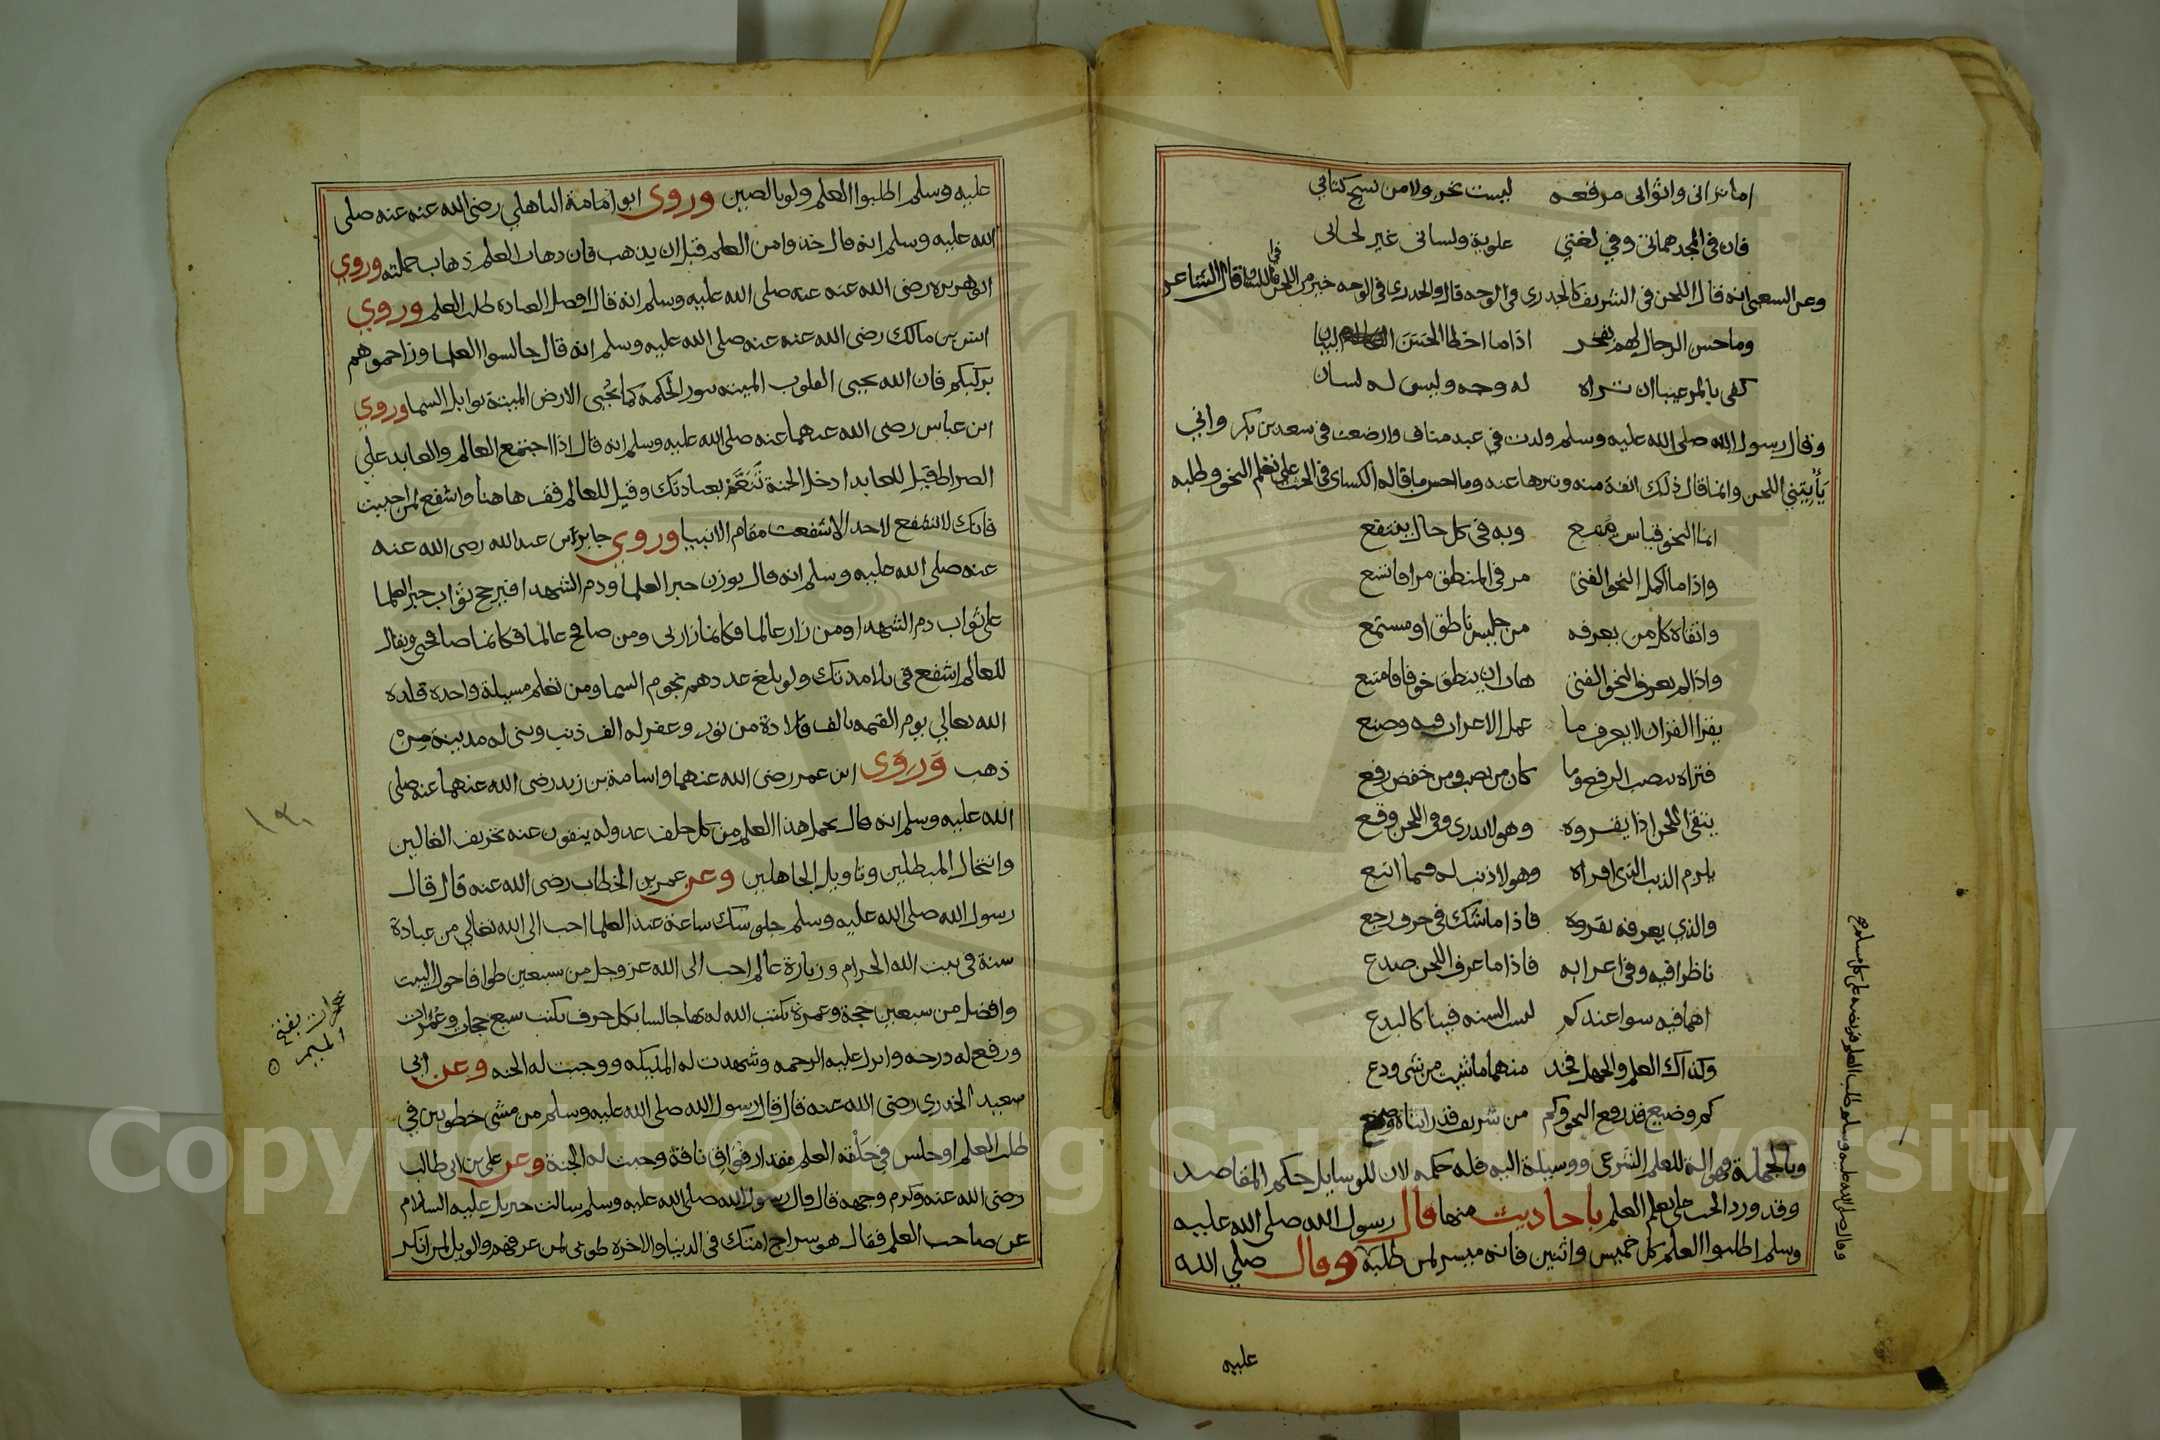 اما تراني واثوابي مرقعه ليست بخز ولا من نسج كتاني
فان في المجد هماتي وفي لغتي علوية ولساني غير لحاني
وعن الشعبي انه قال اللحن في الشريف كالجدري في الوجه قال والجدري في الوجه خير من اللحن في اللسان قال الشاعر
وما حسن الرجال لهم بفخر اذا ما اخطا الحسن البيان
كفى بالمر عيبا ان تراه له وجه وليس له لسان
وقال رسول الله صلى الله عليه وسلم ولدت في عبد مناف وارضعت في سعد بن بكر واني
يأتيني اللحن وانما قال ذلك انفة منه وتنزها عنه وما احسن ما قاله الكساي في الحث على تعلم النحو وطلبه
انما النحو قياس يتبع وبه في كل حال ينتفع
واذا ما اكمل النحو الفتى مر في المنطق مرا فاتسع
واتقاه كل من يعرفه من جليس ناطق او مستمع
واذا لم يعرف النحو الفتى هاب ان ينطق خوفا فامتنع
يقرا القران لا يعرف ما عمل الاعراب فيه وصنع
فتراه ينصب الرفع وما كان من نصب ومن خفض رفع
يتقي اللحن اذا يقروه وهو لا يدري وفي اللحن وقع
يلزم الذنب الذي اقراه وهو لا ذنب له فيما اتبع
والذي يعرفه يقروه فاذا ما شك في حرف رجع
ناظرا فيه وفي اعرابه فاذا ما عرف اللحن صدع
اهما فيه سوا عندكم ليست السنه فينا كالبدع
وكذاك العلم والجهل فخذ منهما ما شيت من شي ودع
كم وضيع قد رفع النحو وكم من شريف قد رايناه وضع
وبالجملة فهو الة للعلم الشرعي ووسيلة اليه فله حكمه لان للوسايل حكم المقاصد
وقد ورد الحث على تعلم العلم باحاديث منها قال رسول الله صلى الله عليه
وسلم اطلبوا العلم كل خميس واثنين فانه ميسر لمن طلبه وقال صلى الله
عليه
وقال صلى الله عليه وسلم طلب العلم فريضه على كل مسلم
عليه وسلم اطلبوا العلم ولو بالصين وروى ابو امامة الباهلي رضي الله عنه عنه صلى
الله عليه وسلم انه قال خذوا من العلم قبل ان يذهب فان دهاب العلم ذهاب حملته وروي
ابو هريره رضي الله عنه عنه صلى الله عليه وسلم انه قال افضل العبادة طلب العلم وروي
انس بن مالك رضى الله عنه عنه صلى الله عليه وسلم انه قال جالسوا العلما وزاحموهم
بركبكم فان الله يحيى القلوب الميته بنور الحكمه كما يحيى الارض الميتة بوابل السما وروي
ابن عباس رضى الله عنهما عنه صلى الله عليه وسلم انه قال اذا اجتمع العالم والعابد على
الصراط قيل للعابد ادخل الجنة تنعم بعبادتك وقيل للعالم قف هاهنا واشفع لمن احببت
فانك لا تشفع لاحد الا شفعت مقام الانبيا وروي جابر بن عبد الله رضى الله عنه
عنه صلى الله عليه وسلم انه قال يوزن حبر العلما ودم الشهدا فيرجح ثواب حبر العلما
على ثواب دم الشهدا ومن زار عالما فكانما زارني ومن صافح عالما فكانما صافحني ويقال
للعالم اشفع في تلامذتك ولو بلغ عددهم نجوم السما ومن تعلم مسيلة واحدة قلده
الله تعالى يوم القيمه بالف قلادة من نور وغفر له الف ذنب وبنى له مدينة من
ذهب وروى ابن عمر رضى الله عنهما واسامة بن زيد رضى الله عنهما عنه صلى
الله عليه وسلم انه قال يحمل هذا العلم من كل خلف عدوله ينفون عنه تحريف الغالين
وانتحال المبطلين وتاويل الجاهلين وعن عمر بن الخطاب رضى الله عنه قال قال
رسول الله صلى الله عليه وسلم جلوسك ساعة عند العلما احب الى الله تعالى من عبادة
سنة في بيت الله الحرام وزيارة عالم احب الى الله عز وجل من سبعين طوافا حول البيت
وافضل من سبعين حجة وعمرة تكتب الله له بها جالسا بكل حرف يكتب سبع حجات وعمران
ورفع له درجه وانزل عليه الرحمه وشهدت له المليكه ووجبت له الجنه وعن ابي
سعيد الخدري رضى الله عنه قال قال رسول الله صلى الله عليه وسلم من مشى خطوتين في
طلب العلم او جلس في حلقة العلم مقدار فواق نافة وجبت له الجنة وعن علي بن ابي طالب
رضى الله عنه وكرم وجهه قال قال رسول الله صلى الله عليه وسلم سالت جبريل عليه السلام
عن صاحب العلم فقال هو سراج امتك في الدنيا والاخرة طوبى لمن عرفهم والويل لمن انكر
عمران بفتح
الميم
١٣٠
Copyright © King Saud University
1957